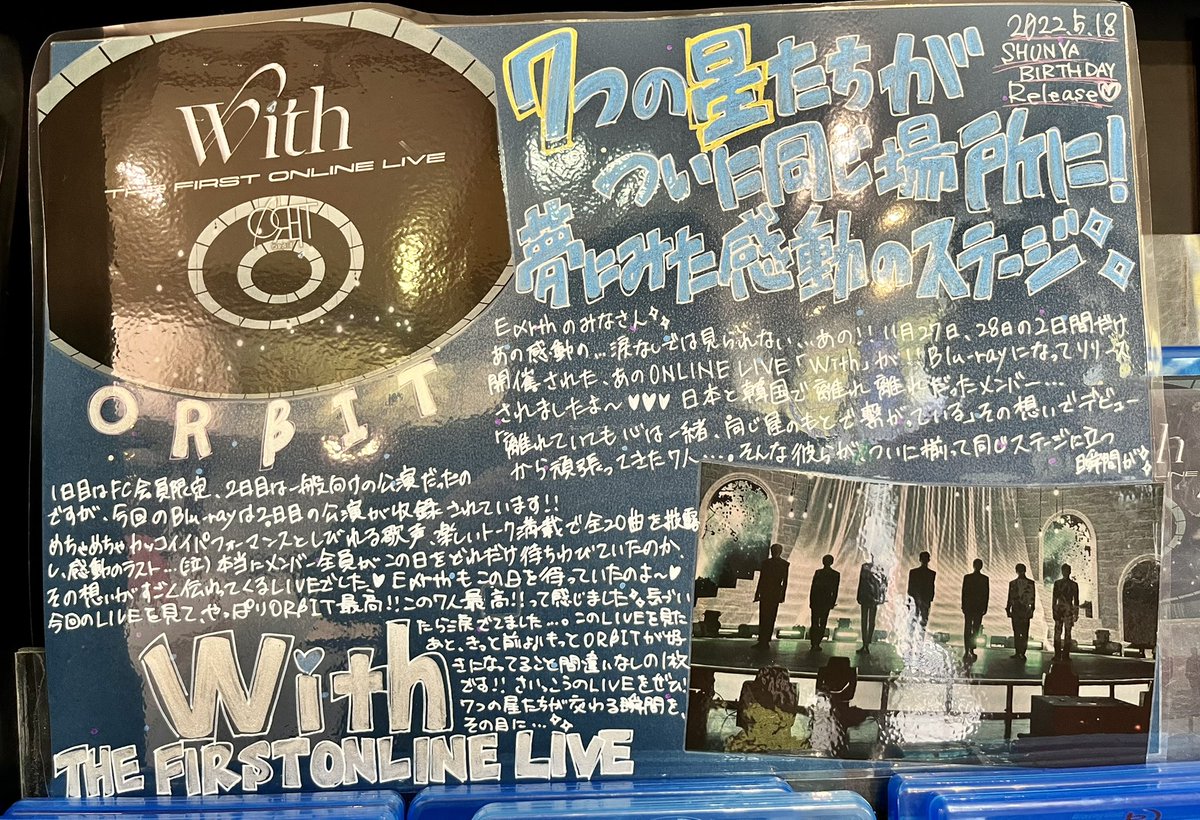 With
THE FIRST ONLINE LIVE
ORβIT
ORβIT
7つの星たちが
ついに同じ場所に!
夢にみた感動のステージ
2022.5.18
SHUNYA
BIRTHDAY
Release♡
EαRthのみなさん
あの感動の…涙なしでは見られない…あの!!11月27日、28日の2日間だけ
開催された、あのONLINE LIVE「With」が!!Blu-rayになってリリース
されましたよ〜♥♥♥ 日本と韓国で離れ離れだったメンバー…
「離れていても心は一緒、同じ星のもとで繋がっている」その想いでデビュー
から頑張ってきた7人…。そんな彼らが、ついに揃って同じステージに立つ
瞬間が
1日目はFC会員限定、2日目は一般向けの公演だったの
ですが、今回のBlu-rayは2日目の公演が収録されています!!
めちゃめちゃカッコイイパフォーマンスとしびれる歌声、楽しいトーク満載で全20曲を披露
し、感動のラスト…(泣)本当にメンバー全員がこの日をどれだけ待ちわびていたのか、
その想いがすごく伝わってくるLIVEでした♥ EαRthもこの日を待っていたのよ〜♥
今回のLIVEを見て、やっぱりORβIT最高!!この7人最高!!って感じました。気づい
たら涙でてました…。このLIVEを見た
あと、きっと前よりもってORβITが好
きになってること間違いなしの1枚
です!!さいっこうのLIVEをぜひ!
7つの星たちが交わる瞬間を、
その目に…
With
THE FIRST ONLINE LIVE